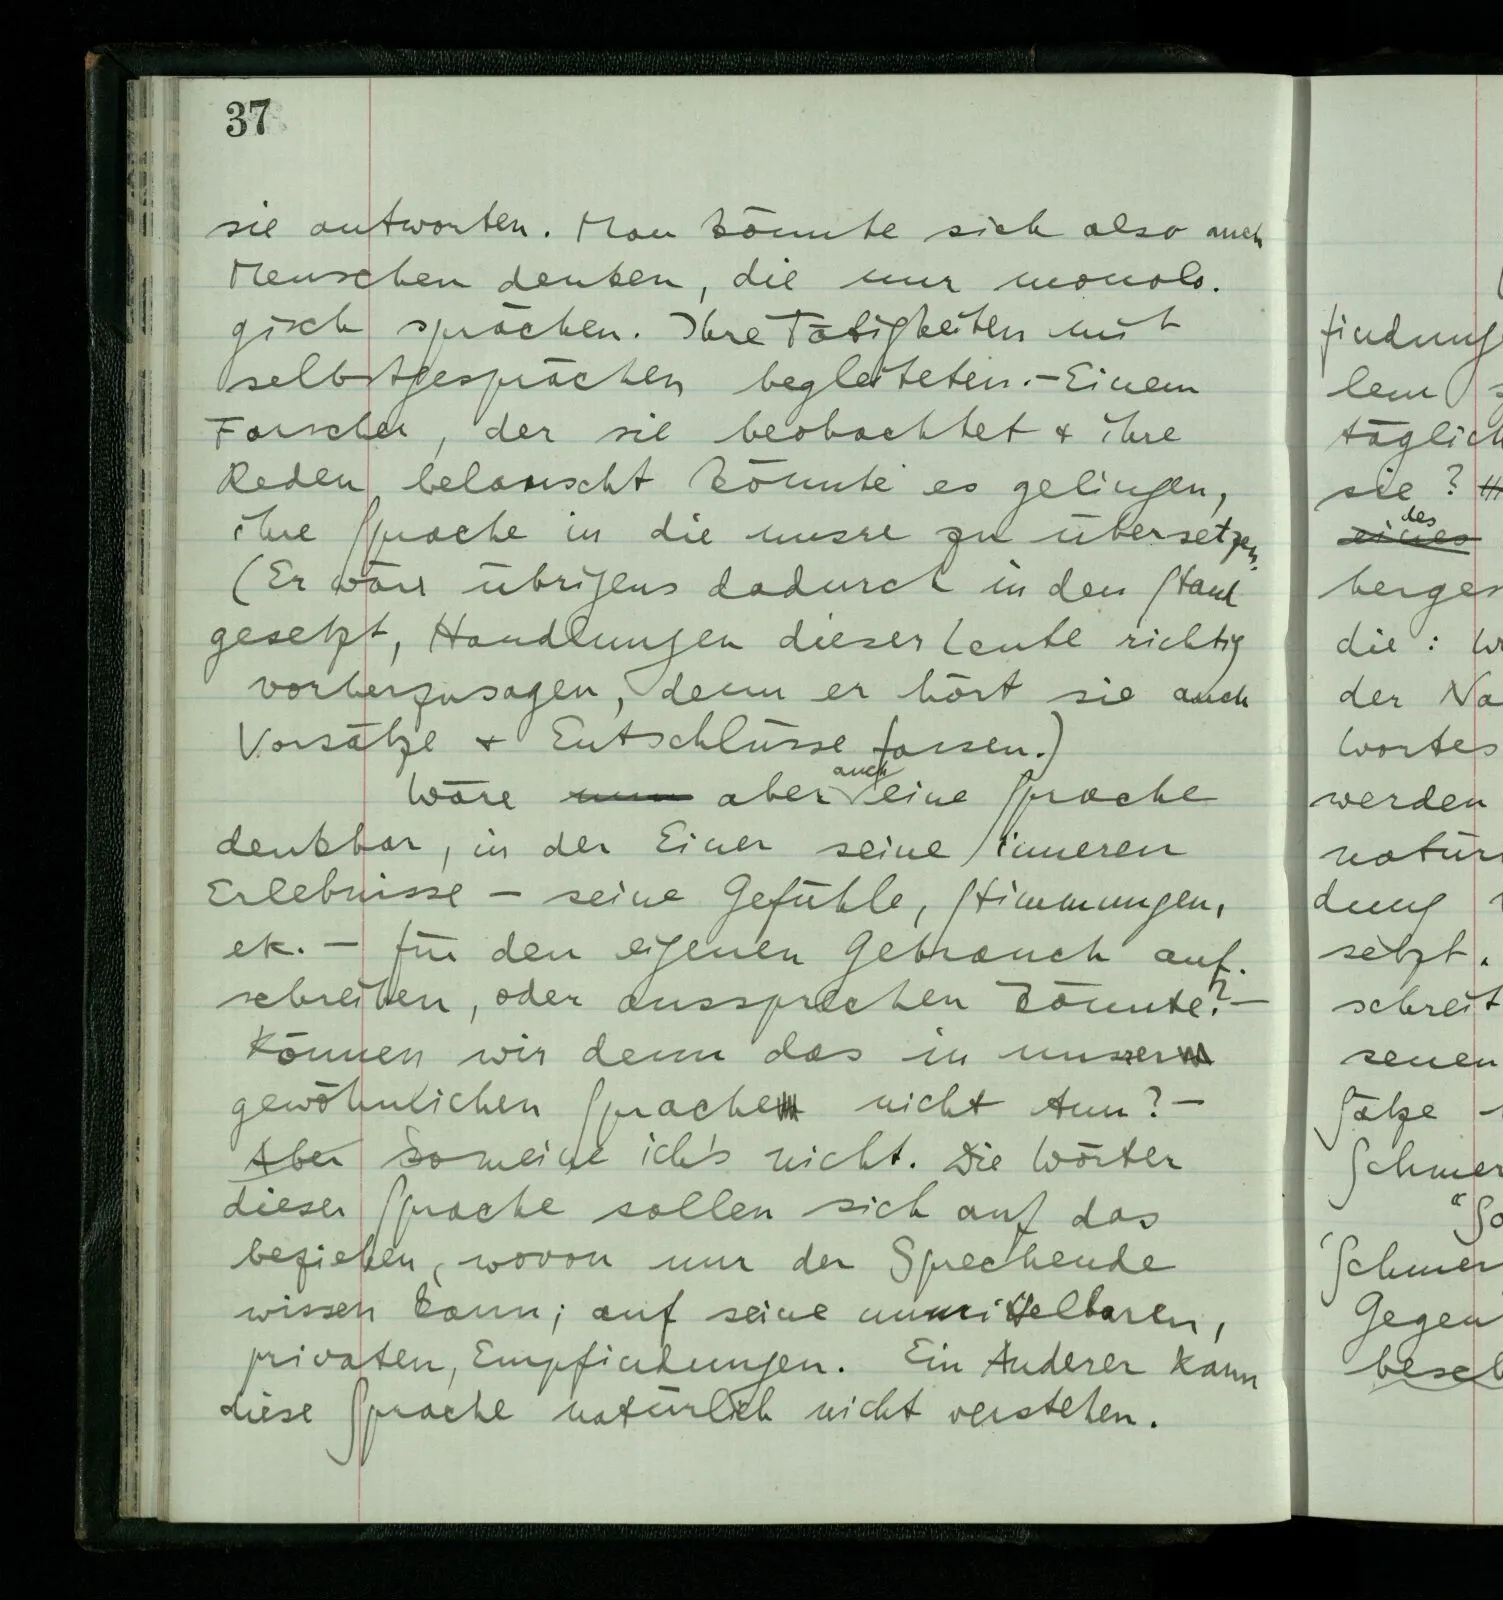 37
sie antworten. Man könnte sich also auch
Menschen denken, die nur monolo-
gisch sprächen. Ihre Tätigkeiten mit
selbstgesprächen begleiteten.– Einem
Forscher, der sie beobachtet & ihre
Reden belauscht könnte es gelingen,
ihre Sprache in die unsre zu übersetzen.
(Er wäre übrigens dadurch in den Stand
gesetzt, Handlungen dieser Leute richtig
vorherzusagen, denn er hört sie auch
Vorsätze & Entschlüsse fassen.)
Wäre nun aber auch eine Sprache
denkbar, in der Einer seine inneren
Erlebnisse – seine Gefühle, Stimmungen,
etc. – für den eigenen Gebrauch auf-
schreiben, oder aussprechen könnte? –
Können wir denn das in unserer
gewöhnlichen Sprache nicht tun? –
Aber so meine ich's nicht. Die Wörter
dieser Sprache sollen sich auf das
beziehen, wovon nur der Sprechende
wissen kann; auf seine unmittelbaren,
privaten, Empfindungen. Ein Anderer kann
diese Sprache natürlich nicht verstehen.
findung
lem
täglich
sie?
eines des
berges
die: W
der Na
Wortes
werden
natür
dung
setzt.
schreit
senen
Sätze
Schmer
"So
'Schmer
Gegen
besch